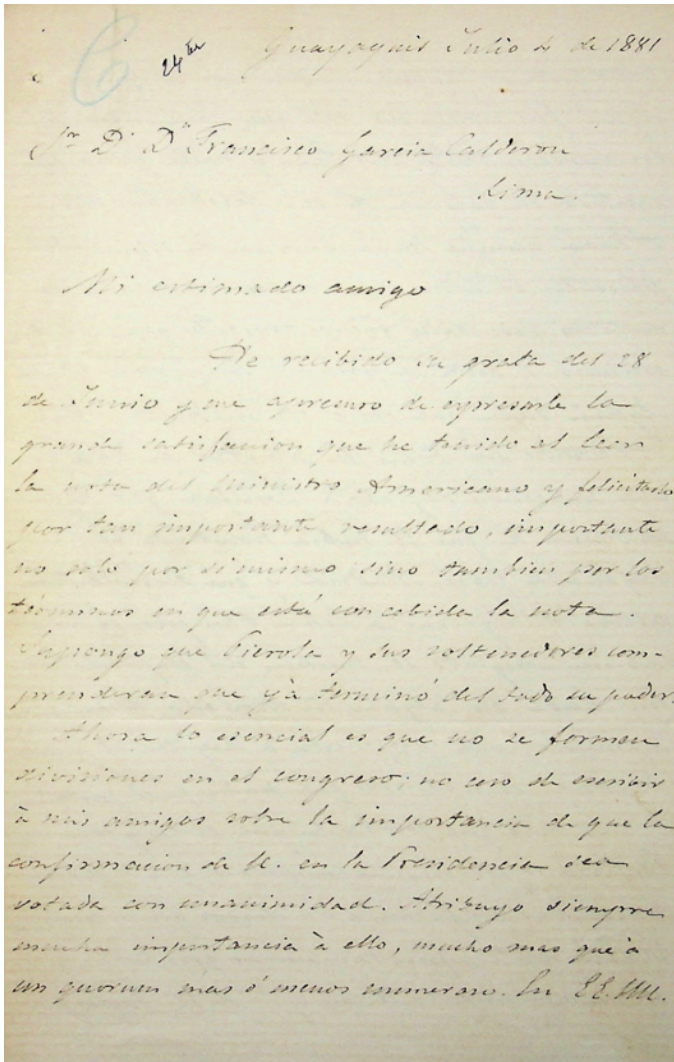 C 24ta
Guayaquil Julio 4 de 1881
Sr. Dr. Dn. Francisco Garcia Calderon
Lima.
Mi estimado amigo
He recibido su grata del 28
de Junio y me apresuro de espresarle la
grande satisfaccion que he tenido al leer
la nota del Ministro Americano y felicitarlo
por tan importante resultado, importante
no solo por si mismo sino tambien por los
términos en que está concebida la nota.
Supongo que Pierola y sus sostenedores com-
prenderan que yà terminó del todo su poder.
Ahora lo esencial es que no se formen
divisiones en el congreso; no ceso de escribir
à mis amigos sobre la importancia de que la
confirmacion de U. en la Presidencia sea
votada con unanimidad. Atribuyo siempre
mucha importancia à ello, mucho mas que à
un quorum mas ó menos numeroso. En EE.UU.